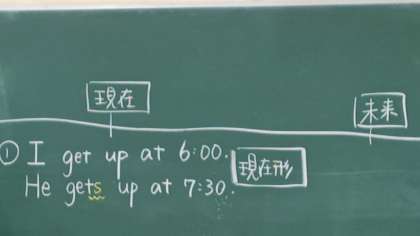 現在
未来
① I get up at 6:00.
現在形
He gets up at 7:30.